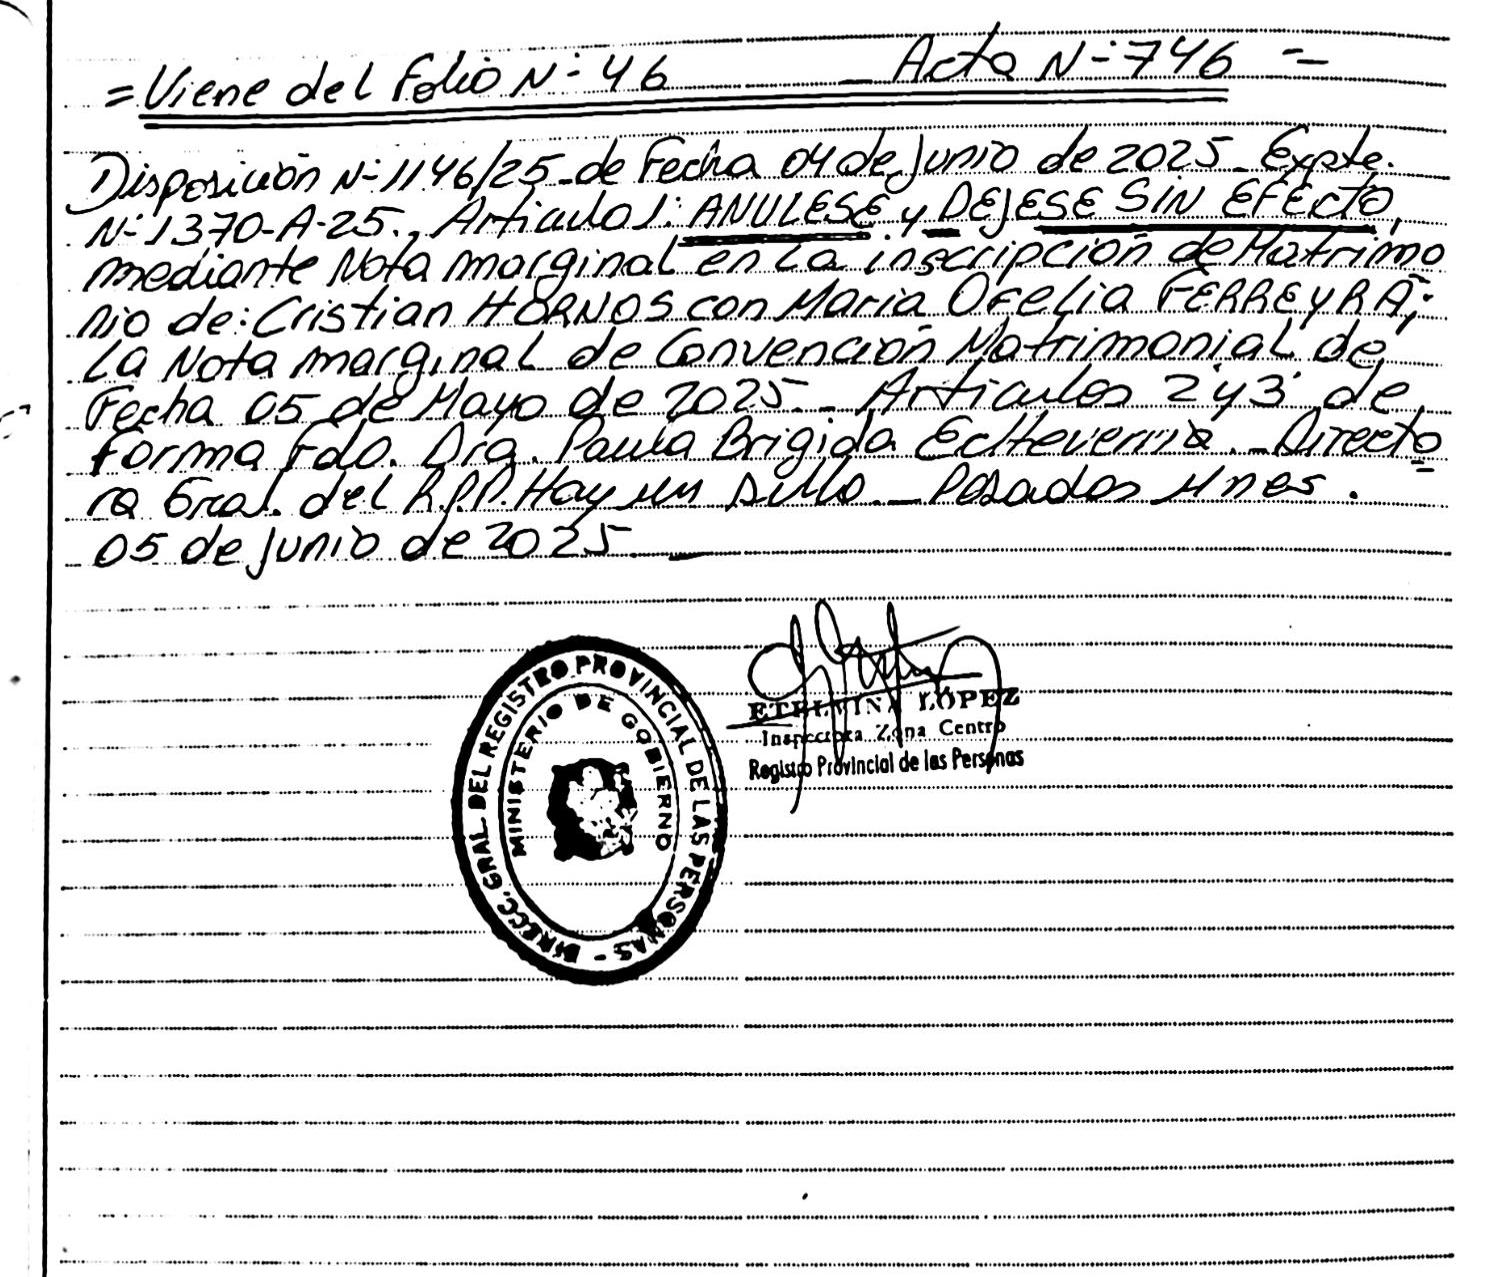 = Viene del Folio N-º 46 _ Acta N-º 746 =
Disposición N-º 1146/25 _ de Fecha 04 de Junio de 2025 _ Expte.
N-º 1370-A-25., Articulo 1: ANULESE y DEJESE SIN EFECTO,
mediante Nota marginal en La inscripción de Matrimo
nio de: Cristian HORNOS con Maria OFELia FERREYRA;
La Nota marginal de Convención Matrimonial de
Fecha 05 de Mayo de 2025. _ Articulos 2 y 3 de
Forma Fdo. Dra. Paula Brigida Echeverria. _ Directo
ra Gral. del R.P.P. Hay un sello. _ Posadas Mnes.
05 de Junio de 2025 _
DIRECC. GRAL. DEL REGISTRO PROVINCIAL DE LAS PERSONAS -
MINISTERIO DE GOBIERNO
ETELVINA LÓPEZ
Inspectora Zona Centro
Registro Provincial de las Personas